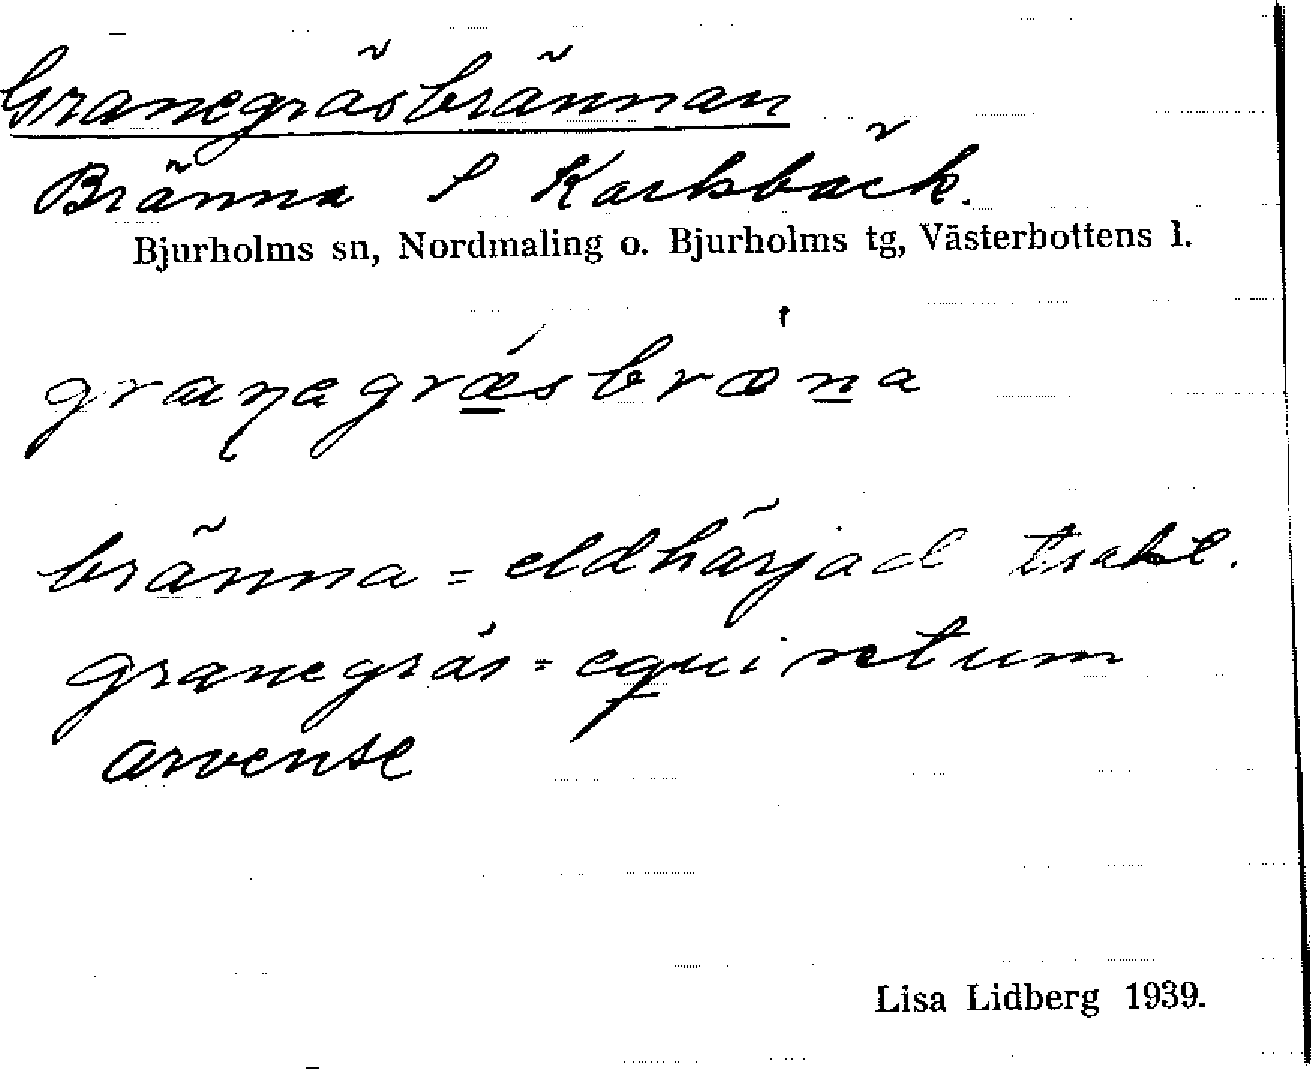 Granegräsbrännan
Bränna S Karlsbäck.
Bjurholms sn, Nordmaling o. Bjurholms tg, Västerbottens l.
bränna = eldhärjad trakt.
granegräs = equisetum
arvense
Lisa Lidberg 1939.